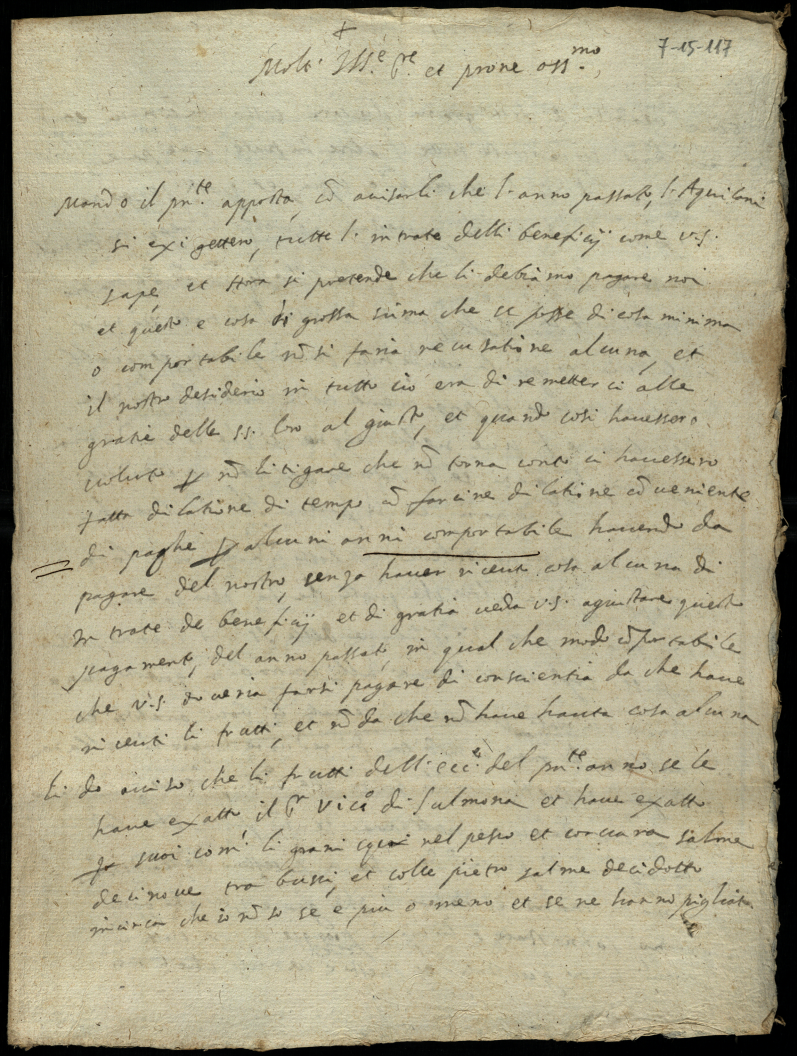 7-15-117
+
Molt. Ill.e Sre et prone oss.mo,
Mando il pnte apposta, cō auisarli che l'anno passato, l'Aquilani
si exigettero, tutte l'intrate delli beneficij come v.s.
sape, et Hora si pretende che li debiamo pagare noi
et questo e cosa di grossa sūma che se fosse di cosa minima
o comportabile nō si faria recusatione alcuna, et
il nostro desiderio in tutto ciò era di remetterci alle
gratie delle ss. loro al giusto, et quando cosi hauessero
uoluto p nō litigare che nō torna conto ci hauessero
fatta dilatione di tempo cō farcine dilatione cōueniente
di paghe p alcuni anni comportabile hauendo da
pagare del nostro, senza hauer riceuto cosa alcuna di
Intrate de beneficij et di gratia ueda v.s. agiustare questo
pagamento, del anno passato, in qual che modo cōportabile
che v.s. doueria farsi pagare di conscientia da che haue
riceuti li frutti, et nō da che nō haue hauta cosa alcuna
Li do auiso che li frutti dell'ecc.e del pnte anno se le
haue exatto il Sr Vic.o di Sulmona et haue exatto
p suoi com.i li grani cioè nel pesco et corcura salme
decinoue tra bussi, et colle pietro salme decidotto
incirca che io nō so se e piu o meno et se ne hanno pigliato